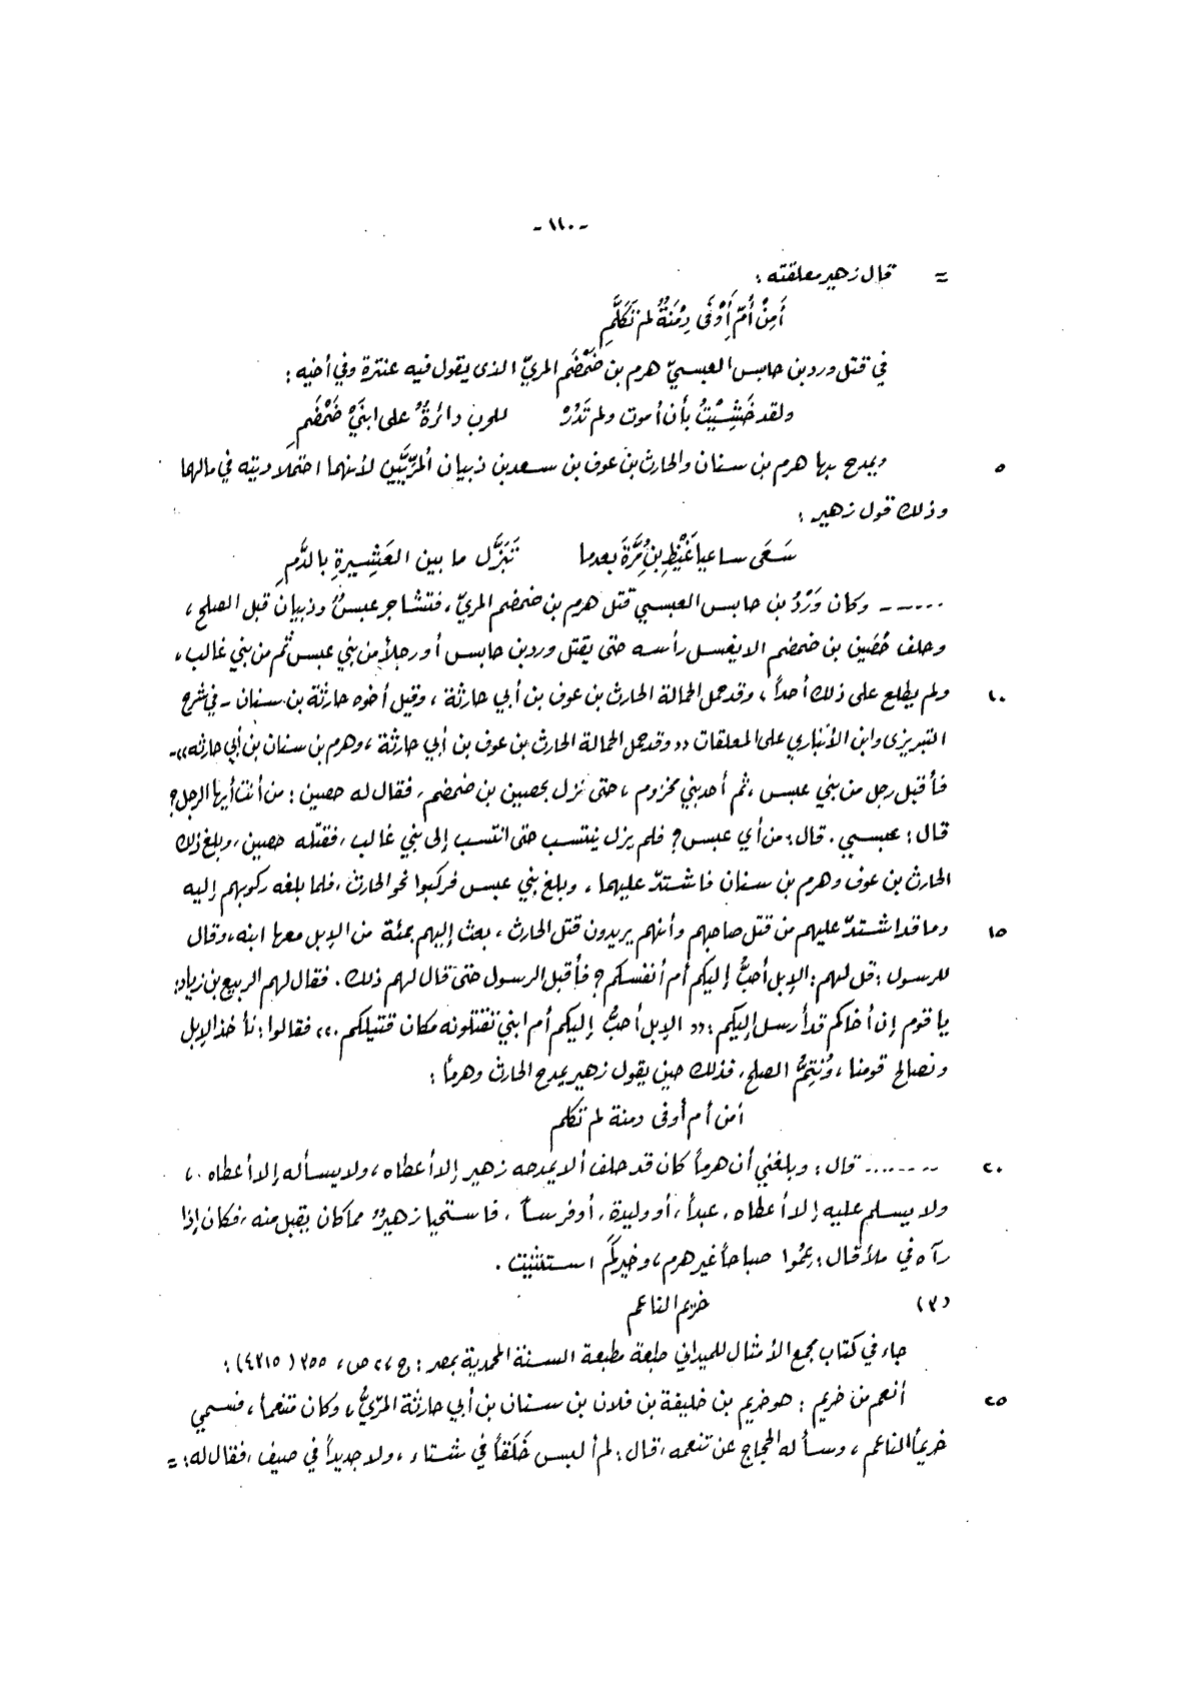 -١١٠-
= قال زهير معلقته :
أَمِنْ أُمِّ أَوْفَى دِمْنَةٌ لم تَكَلَّمِ
في قتل ورد بن حابس العبسيّ هرم بن ضَمْضَم المريّ الذى يقول فيه عنترة وفي أخيه :
ولقد خَشِيْتُ بأن أموت ولم تَدُرْ للحرب دائرةٌ على ابنَيْ ضَمْضَمِ
٥ ويمدح بها هرم بن سنان والحارث بن عوف بن سعد بن ذبيان المُرِّيَّين لأنهما احتملا ديته في مالهما
وذلك قول زهير :
سَعَى ساعيا غَيْظِ بنِ مُرَّةَ بعدما تَبَزَّل ما بين العَشِيرةِ بالدَّمِ
...... وكان وَرْدُ بن حابس العبسي قتل هرم بن ضمضم المريّ ، فتشاجر عبسٌ وذبيان قبل الصلح ،
وحلف حُصَين بن ضمضم الا يغسل رأسه حتى يقتل ورد بن حابس أو رجلاً من بني عبس ثم من بني غالب ،
١٠ ولم يطلع على ذلك أحداً ، وقد حمل الحمالة الحارث بن عوف بن أبي حارثة ، وقيل أخوه حارثة بن سنان - في شرح
التبريزى وابن الأنباري على المعلقات «وقد حمل الحمالة الحارث بن عوف بن أبي حارثة ، وهرم بن سنان بن أبي حارثه» -
فأقبل رجل من بني عبس ، ثم أحد بني مخزوم ، حتى نزل بحصين بن ضمضم ، فقال له حصين : من أنت أيها الرجل ؟
قال : عبسي . قال : من أي عبس ؟ فلم يزل ينتسب حتى انتسب إلى بني غالب ، فقتله حصين ، وبلغ ذلك
الحارث بن عوف وهرم بن سنان فاشتدّ عليهما ، وبلغ بني عبس فركبوا نحو الحارث ، فلما بلغه ركوبهم إليه
١٥ وما قد اشتدّ عليهم من قتل صاحبهم وأنهم يريدون قتل الحارث ، بعث إليهم بمئة من الإبل معها ابنه ، وقال
للرسول : قل لهم : الإبل أحبُّ إليكم أم أنفسكم ؟ فأقبل الرسول حتى قال لهم ذلك . فقال لهم الربيع بن زياد :
يا قوم إن أخاكم قد أرسل إليكم : «الإبل أحبُّ إليكم أم ابني تقتلونه مكان قتيلكم .» فقالوا : نأخذ الإبل
ونصالح قومنا ، ونُتِمُّ الصلح ، فذلك حين يقول زهير يمدح الحارث وهرماً :
أمن أم أوفى دمنة لم تكلم
٢٠ ........ قال : وبلغني أن هرماً كان قد حلف ألا يمدحه زهير إلا أعطاه ، ولا يسأله إلا أعطاه ،
ولا يسلم عليه إلا أعطاه ، عبداً ، أو وليدة ، أو فرساً . فاستحيا زهيرٌ مما كان يقبل منه ، فكان إذا
رآه في ملأ قال : عِمُوا صباحاً غير هرم ، وخيركُم استثنيت .
(٣) خريم الناعم
جاء في كتاب مجمع الأمثال للميداني طبعة مطبعة السنة المحمدية بمصر : ج ٢ ص ، ٣٥٥ (٤٣١٥) :
٢٥ أنعم من خريم : هو خريم بن خليفة بن فلان بن سنان بن أبي حارثة المرّيُّ ، وكان متنعماً ، فسمي
خريماً الناعم ، وسأله الحجاج عن تنعمه ، قال : لم ألبس خَلَقاً في شتاء ، ولا جديداً في صيف ، فقال له : =